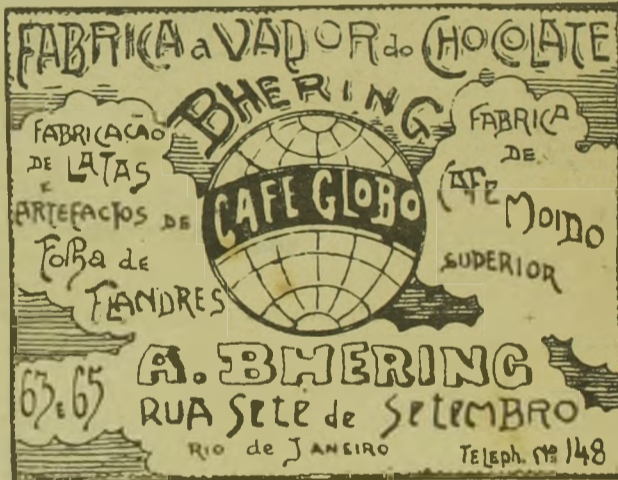 FABRICA a VAPOR do CHOCOLATE
BHERING
CAFE GLOBO
FABRICAÇÃO
DE LATAS
E
ARTEFACTOS DE
Folha de
FLANDRES
FABRICA
DE
CAFE
MOIDO
SUPERIOR
A. BHERING
63 E 65
RUA SETE de SETEMBRO
RIO de JANEIRO
TELEPH. Nº 148